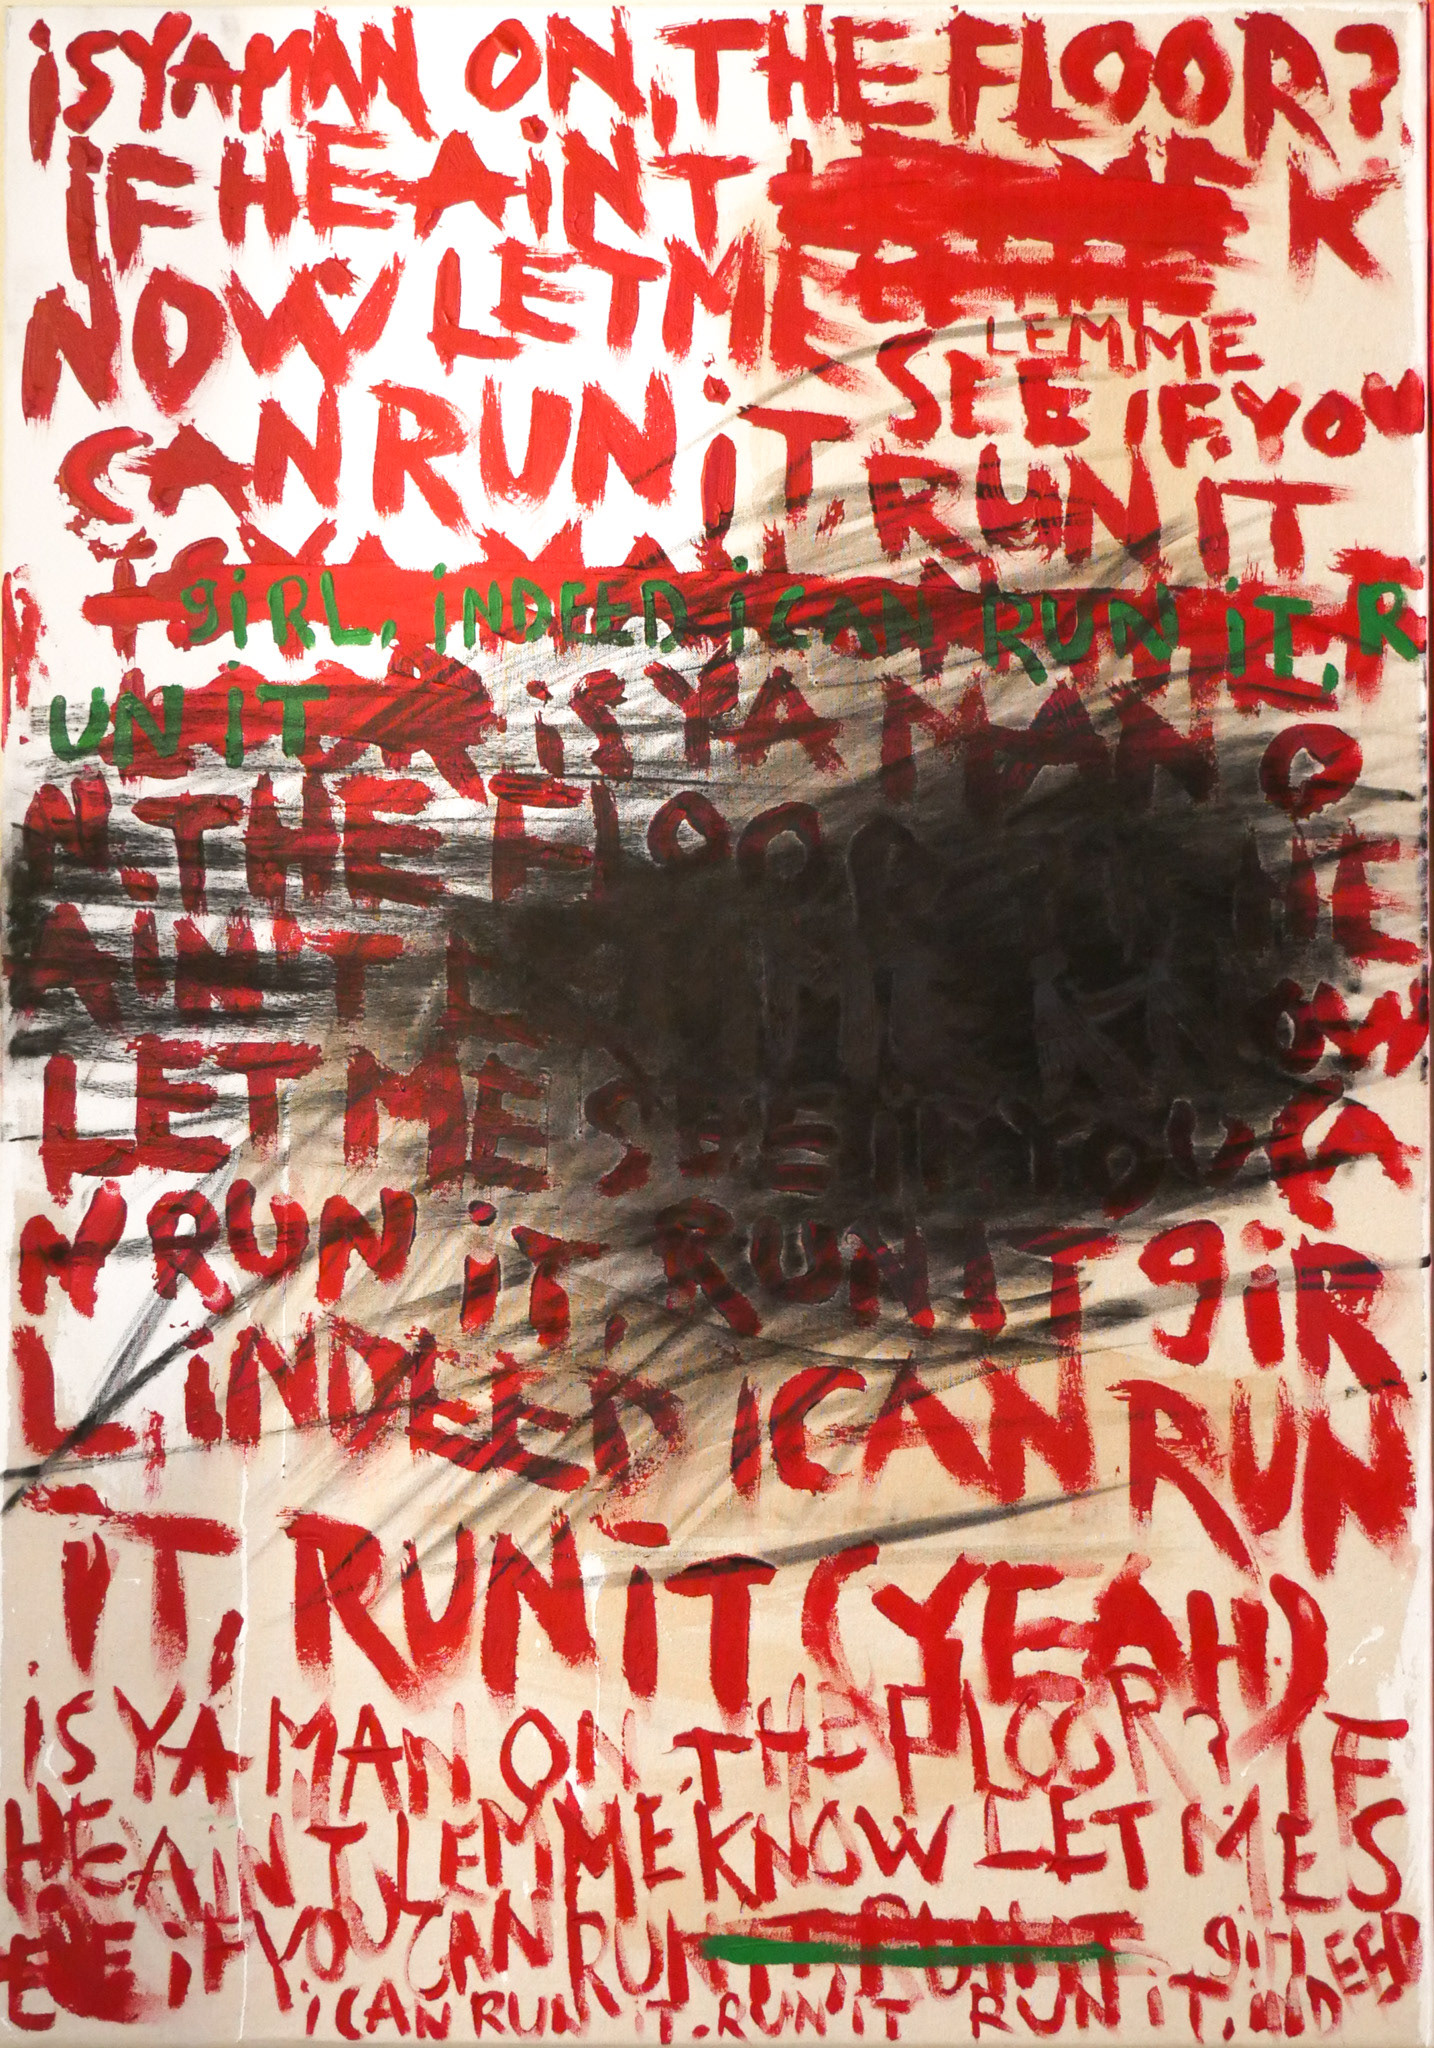 iSYAMAN ON.THE FLOOR?
iF HE AiNT K
NOW LET ME
LEMME
SEE IF.YOU
CAN RUN iT. RUN IT
giRL, iNDEED i CAN RUN iT, R
UN iT
iS YA MAN
N.THE FLOO
AIN'T L
LET ME SEE YOU
N RUN iT, RUN IT giR
L, iNDEED I CAN RUN
iT, RUN iT (YEAH)
iS YA MAN ON .THE FLOOR? IF
HE AiNT LEMME KNOW LET ME S
EE iF YOU CAN RUN
i CAN RUN iT. RUN iT RUN iT. iND EED